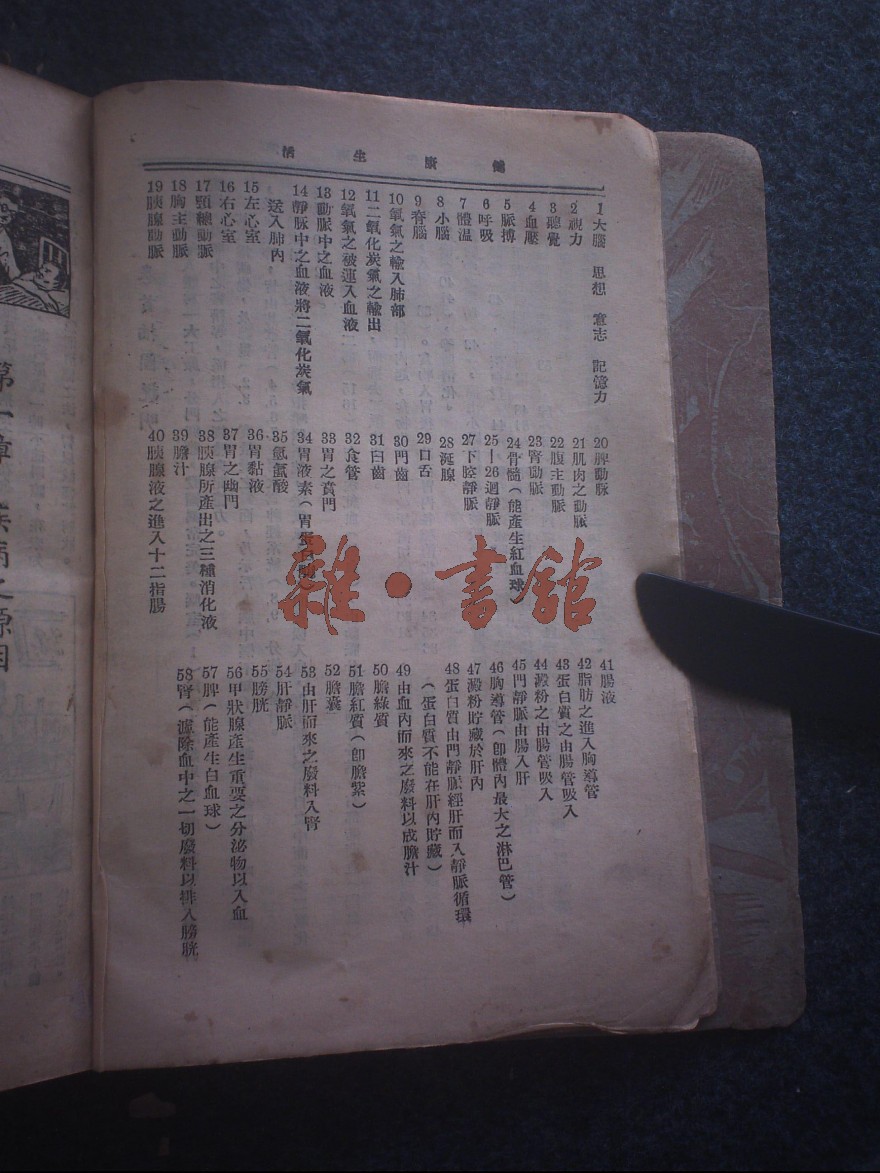 健康生活
1 大腦 思想 意志 記憶力
2 視力
3 聽覺
4 血壓
5 脈搏
6 呼吸
7 體溫
8 小腦
9 脊腦
10 氧氣之輸入肺部
11 二氧化炭氣之輸出
12 氧氣之被運入血液
13 動脈中之血液
14 靜脈中之血液將二氧化炭氣
送入肺內
15 左心室
16 右心室
17 頸總動脈
18 胸主動脈
19 胰腺動脈
20 脾動脈
21 肌肉之動脈
22 腹主動脈
23 腎動脈
24 骨髓(能產生紅血球)
25—26 迴靜脈
27 下腔靜脈
28 涎腺
29 口舌
30 門齒
31 臼齒
32 食管
33 胃之賁門
34 胃液素(胃蛋白酶)
35 氫氯酸
36 胃黏液
37 胃之幽門
38 胰腺所產出之三種消化液
39 膽汁
40 胰腺液之進入十二指腸
41 腸液
42 脂肪之進入胸導管
43 蛋白質之由腸管吸入
44 澱粉之由腸管吸入
45 門靜脈由腸入肝
46 胸導管(即體內最大之淋巴管)
47 澱粉貯藏於肝內
48 蛋白質由門靜脈經肝而入靜脈循環
(蛋白質不能在肝內貯藏)
49 由血內而來之廢料以成膽汁
50 膽綠質
51 膽紅質(即膽紫)
52 膽囊
53 由肝而來之廢料入腎
54 肝靜脈
55 膀胱
56 甲狀腺產生重要之分泌物以入血
57 脾(能產生白血球)
58 腎(濾除血中之一切廢料以排入膀胱
第一章 疾病之源因
雜·書館